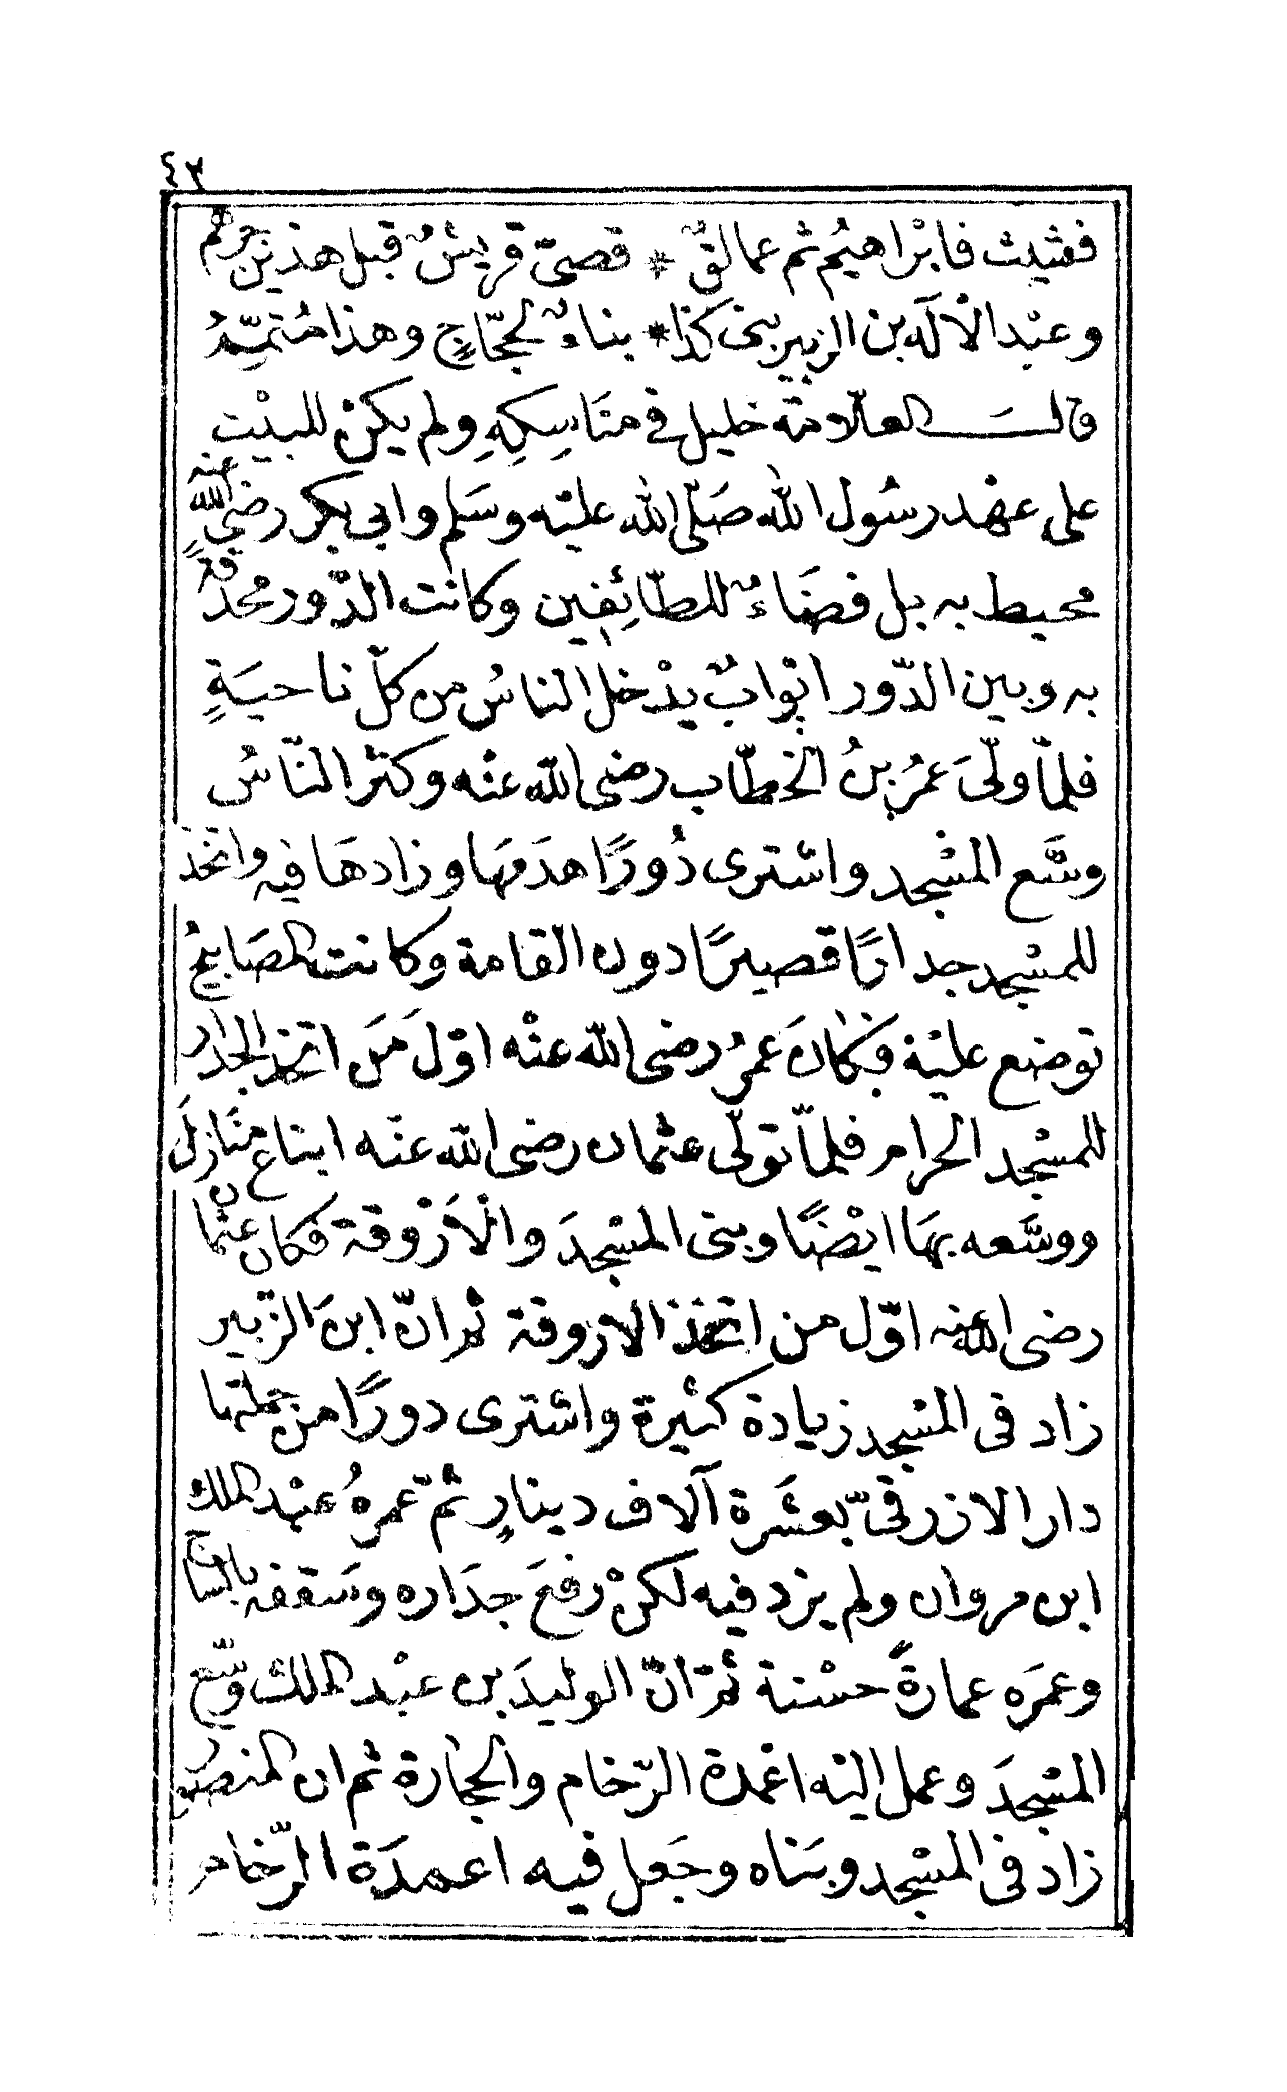 ٤٢
فشيث فابْراهيُم ثم عمالقٌ * قصىّ قريشٌ قبل هذين جرهم
وعبْد الْاله بن الزبير بنى كذا * بناءٌ لحجّاجٍ وهذا مُتمِّمُ
قالــــ العلّامة خليل فى مَنَاسِكِهِ ولم يكنْ للبيْتِ
على عهْد رسُول الله صَلّى الله عليْه وسَلم وابى بكر رضى الله عنه
محيط به بل فضَاءٌ للطّائِفِين وكانت الدّور محدقةً
به وبين الدّور ابْوابٌ يدْخل الناسُ من كلّ ناحيَةٍ
فلمّا ولّىَ عمرُ بنُ الخطّاب رضى الله عنْه وكثر النّاسُ
وسَّع المسْجد واشترى دُورًا هدَمَهَا وزادهَا فيه واتخذ
للمسْجد جدارًا قصيرًا دون القامة وكانت المصَابيحُ
توضع عليْه فكانَ عمرُ رضى الله عنْه اوّلَ مَن اتخذ الجدار
للمسْجد الحرام فلمّا تولّى عثمان رضى الله عنْه ابتاع مَنَازِلَ
ووسَّعه بهَا ايْضًا وبنى المسْجدَ والْاَرْوقة فكان عثمان
رضى الله عنه اوّل من اتخذ الاروقة ثم انّ ابنَ الزّبير
زاد فى المسْجد زيادة كثيرة واشترى دورًا من جملتها
دار الازرقىّ بعشَرة آلاف دينارٍ ثمّ عمرهُ عبْد الملك
ابن مروان ولم يزد فيه لكنْ رفعَ جدَاره وسَقفه بالساج
وعمرَه عمارةً حسْنة ثمّ انّ الوليدَ بن عبْد الملك وسّع
المسْجدَ وعمل اليْه اعْمدة الرّخام والحجارة ثم ان المنصُور
زاد فى المسْجد وبَناه وجَعل فيه اعمدَة الرّخام